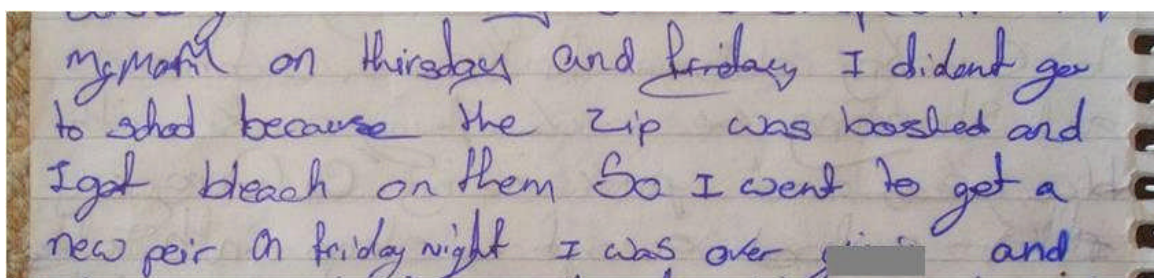 on thirsday and friday I dident go
to school because the zip was boshed and
I got bleach on them So I went to get a
new peir On friday night I was over and